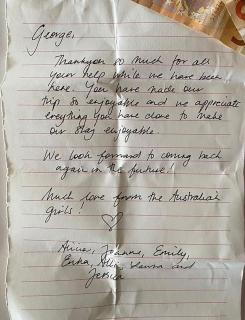 George,
Thankyou so much for all
your help while we have been
here. You have made our
trip so enjoyable and we appreciate
everything you have done to make
our stay enjoyable.
We look forward to coming back
again in the future.
Much love from the Australian
girls!
Jeanne, Emily,
Erika, and
Jessica